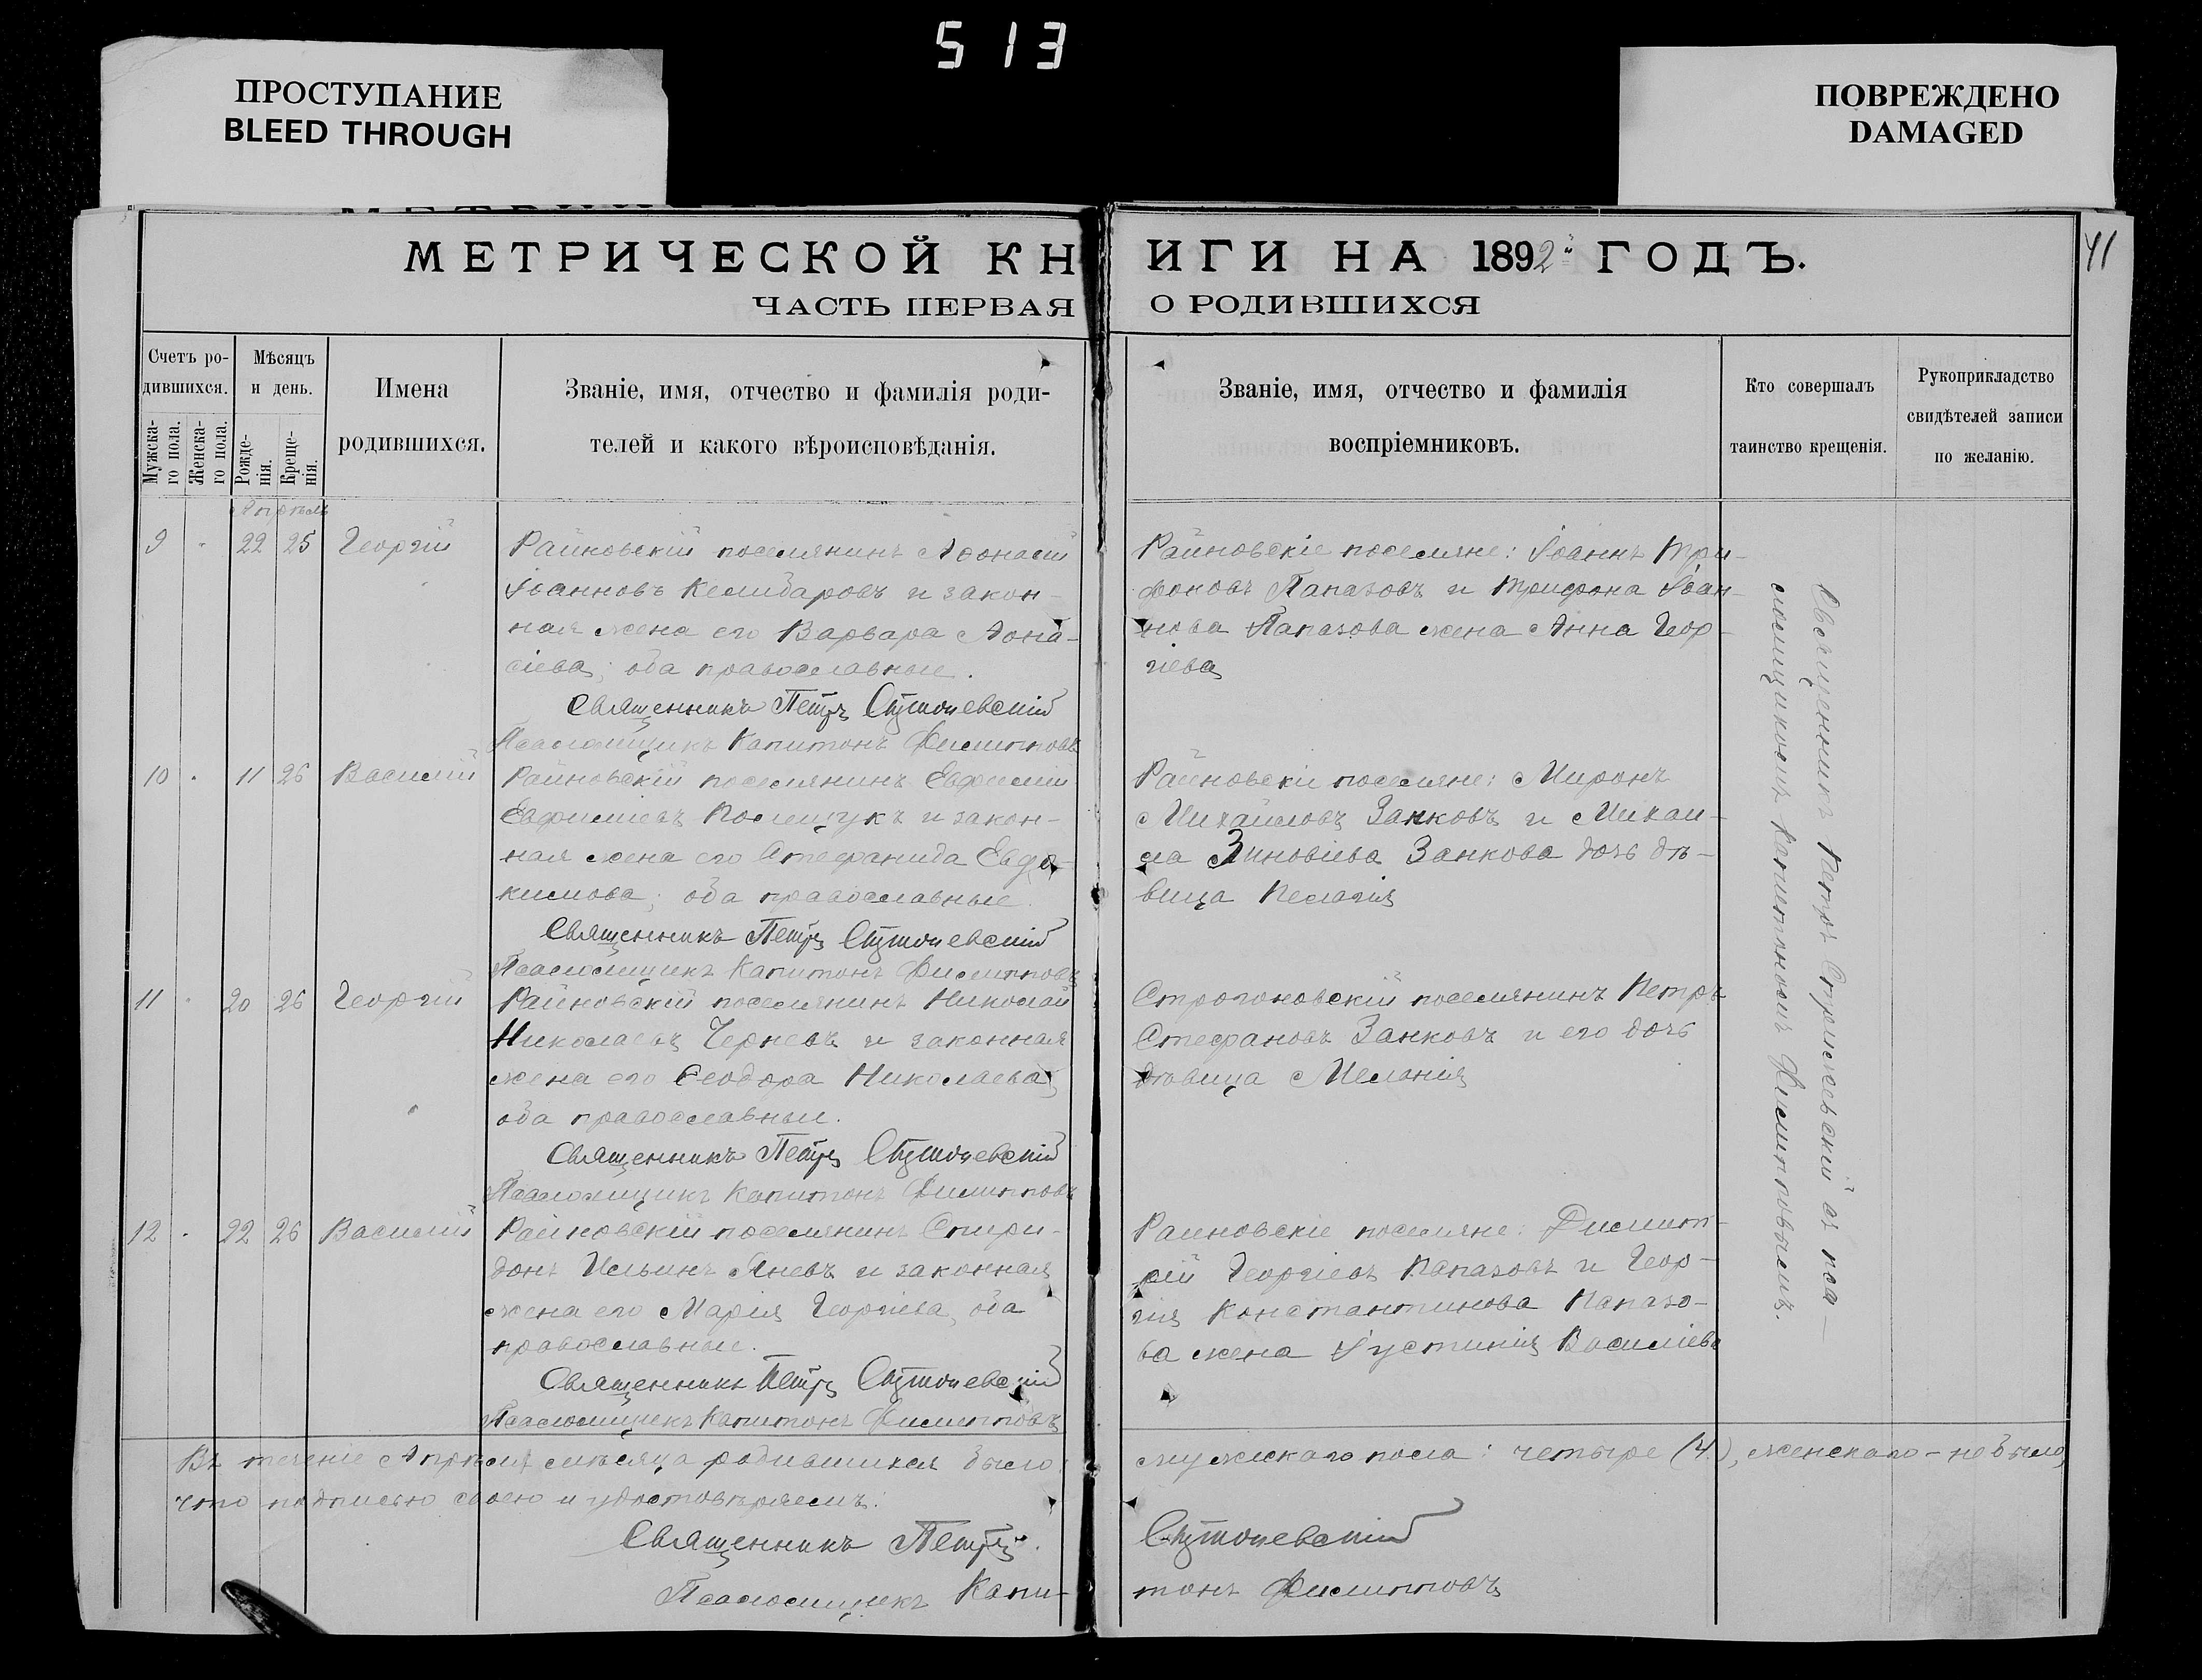 513
ПРОСТУПАНИЕ
BLEED THROUGH
ПОВРЕЖДЕНО
DAMAGED
МЕТРИЧЕСКОЙ КНИГИ НА 1892й ГОДЪ.
41
ЧАСТЬ ПЕРВАЯ О РОДИВШИХСЯ
Счетъ ро-
дившихся.
Мужска-
го пола.
Женска-
го пола.
Мѣсяцъ
и день.
Рожде-
нія.
Креще-
нія.
Имена
родившихся.
Званіе, имя, отчество и фамилія роди-
телей и какого вѣроисповѣданія.
Званіе, имя, отчество и фамилія
воспріемниковъ.
Кто совершалъ
таинство крещенія.
Рукоприкладство
свидѣтелей записи
по желанію.
Апрѣль
9 22 25 Георгій
Райновскій поселянинъ Аѳонасій
Іоанновъ Келибаровъ и закон-
ная жена его Варвара Аѳона-
сіева; оба православные.
Священникъ Петръ
Псаломщикъ Капитонъ Филипповъ
Райновскіе поселяне: Іоаннъ Три-
фоновъ Папазовъ и Трифона Іоан-
нова Папазова жена Анна Геор-
гіева
10 11 26 Василій
Райновскій поселянинъ Евфимій
Евфиміевъ Полищукъ и закон-
ная жена его Стефанида Евдо-
кимова; оба православные.
Священникъ Петръ
Псаломщикъ Капитонъ Филипповъ
Райновскіе поселяне: Миронъ
Михайловъ Занковъ и Михаи-
ла Зиновіева Занкова дочь дѣ-
вица Пелагія
11 20 26 Георгій
Райновскій поселянинъ Николай
Николаевъ Черневъ и законная
жена его Ѳеодора Николаева,
оба православные.
Священникъ Петръ
Псаломщикъ Капитонъ Филипповъ
Строгоновскій поселянинъ Петръ
Стефановъ Занковъ и его дочь
дѣвица Меланія
12 22 26 Василій
Райновскій поселянинъ Спири-
донъ Ильинъ Яневъ и законная
жена его Марія Георгіева, оба
православные.
Священникъ Петръ
Псаломщикъ Капитонъ Филипповъ
Райновскіе поселяне: Димит-
рій Георгіевъ Папазовъ и Геор-
гія Константинова Папазо-
ва жена Іустинія Василіева
Священникъ Петръ съ пса-
ломщикомъ Капитономъ Филипповымъ.
Въ теченіе Апрѣля мѣсяца родившихся было: мужескаго пола: четыре (4), женскаго - не было,
что подписью своею и удостовѣряемъ:
Священникъ Петръ
Псаломщикъ Капитонъ Филипповъ